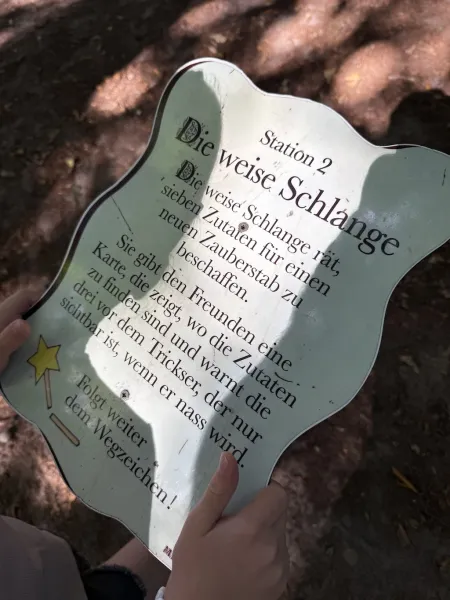 Station 2
Die weise Schlange
Die weise Schlange rät,
sieben Zutaten für einen
neuen Zauberstab zu
beschaffen.
Sie gibt den Freunden eine
Karte, die zeigt, wo die Zutaten
zu finden sind und warnt die
drei vor dem Trickser, der nur
sichtbar ist, wenn er nass wird.
Folgt weiter
dem Wegzeichen!